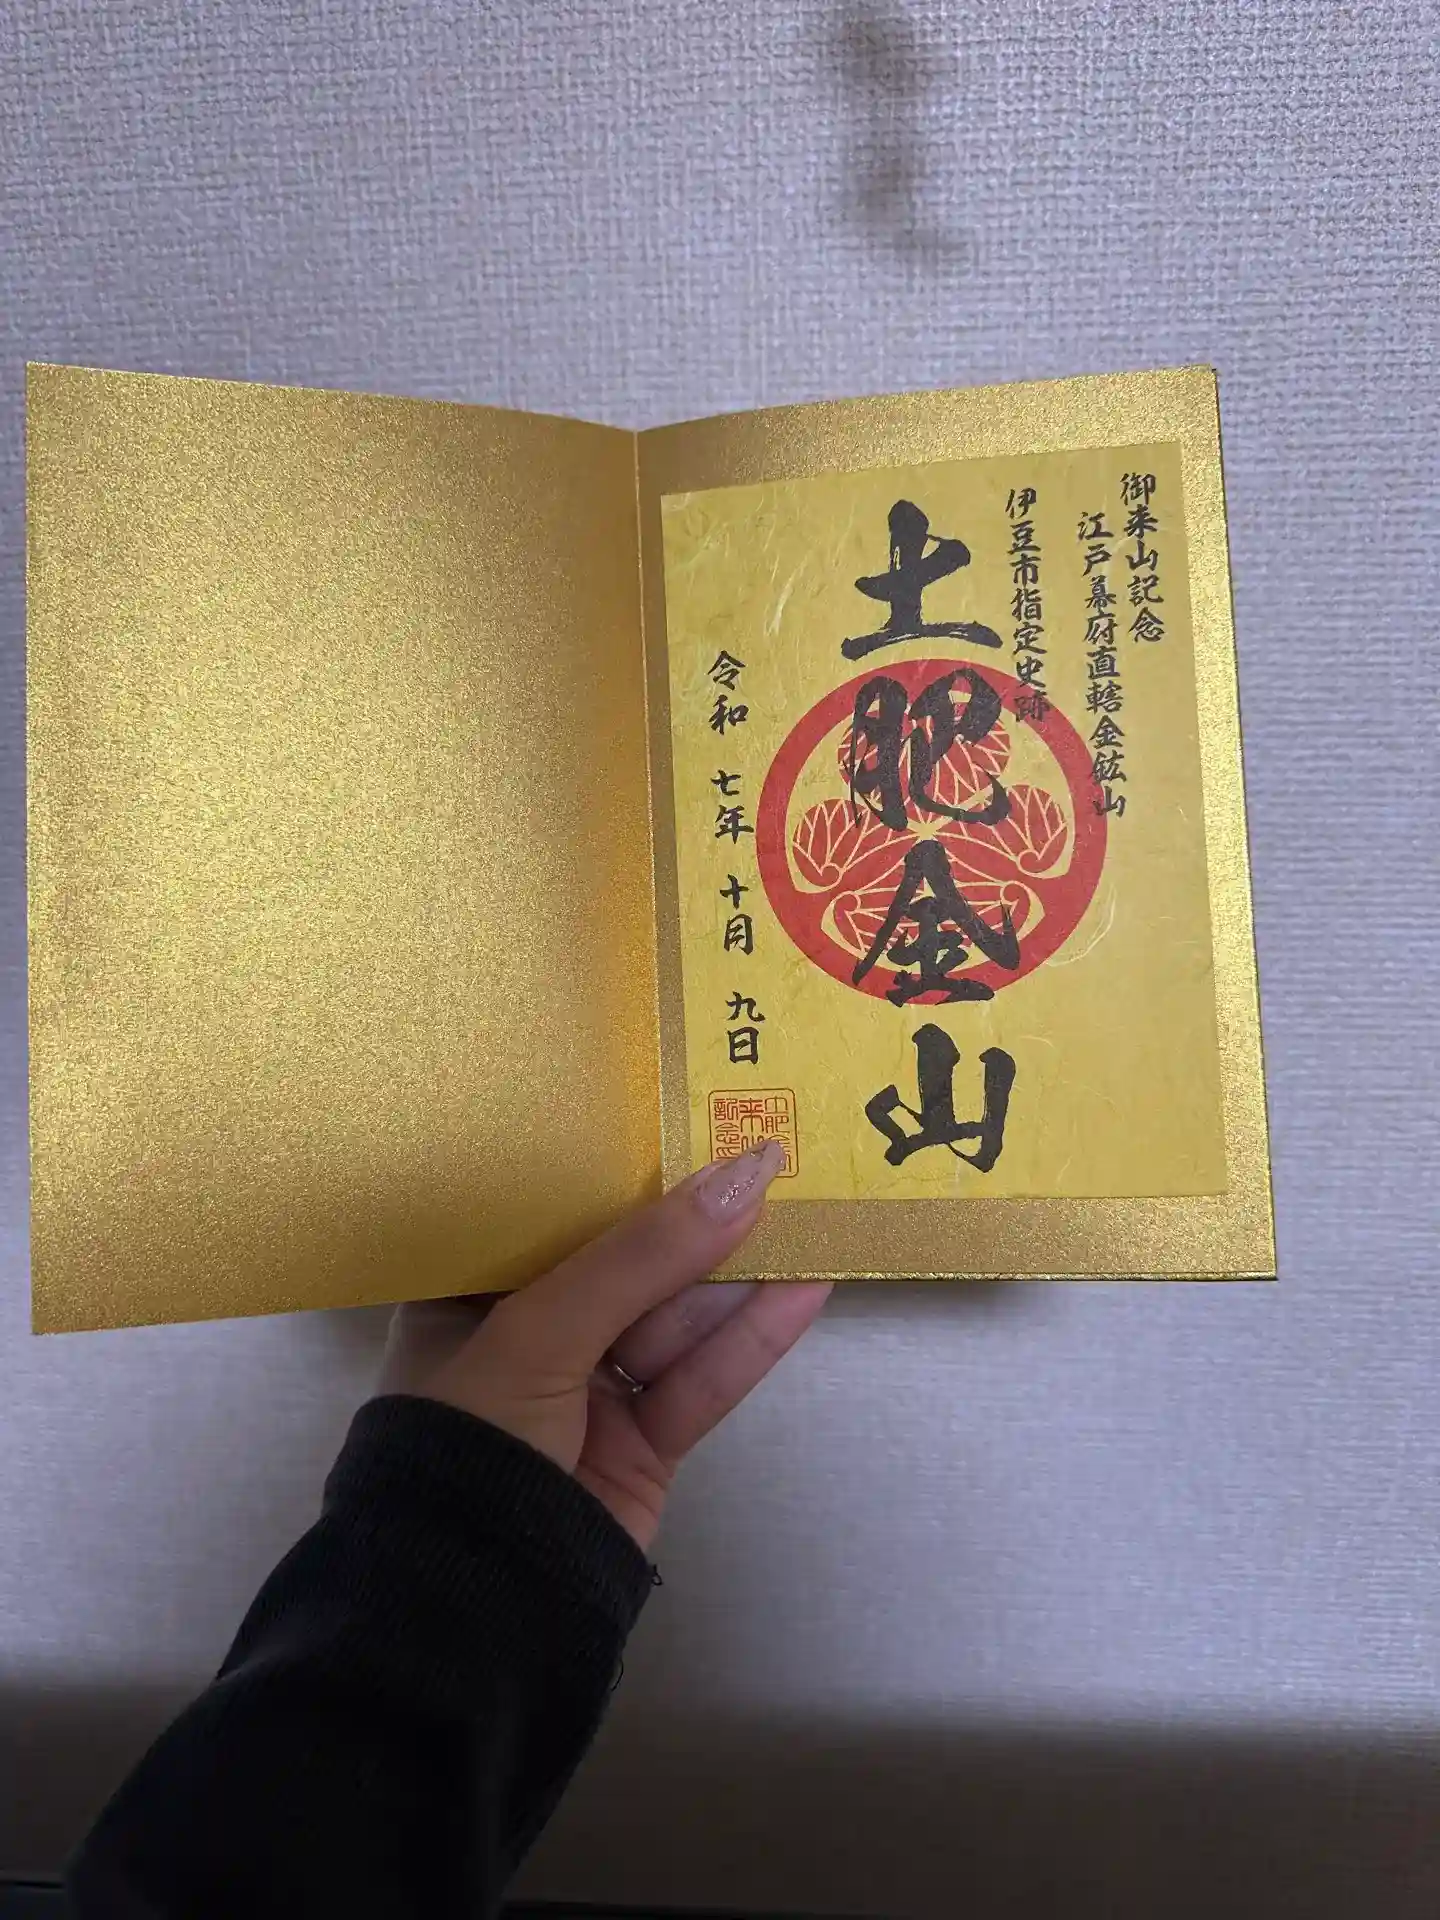 御来山記念
江戸幕府直轄金鉱山
伊豆市指定史跡
土肥金山
令和 七年 十月 九日